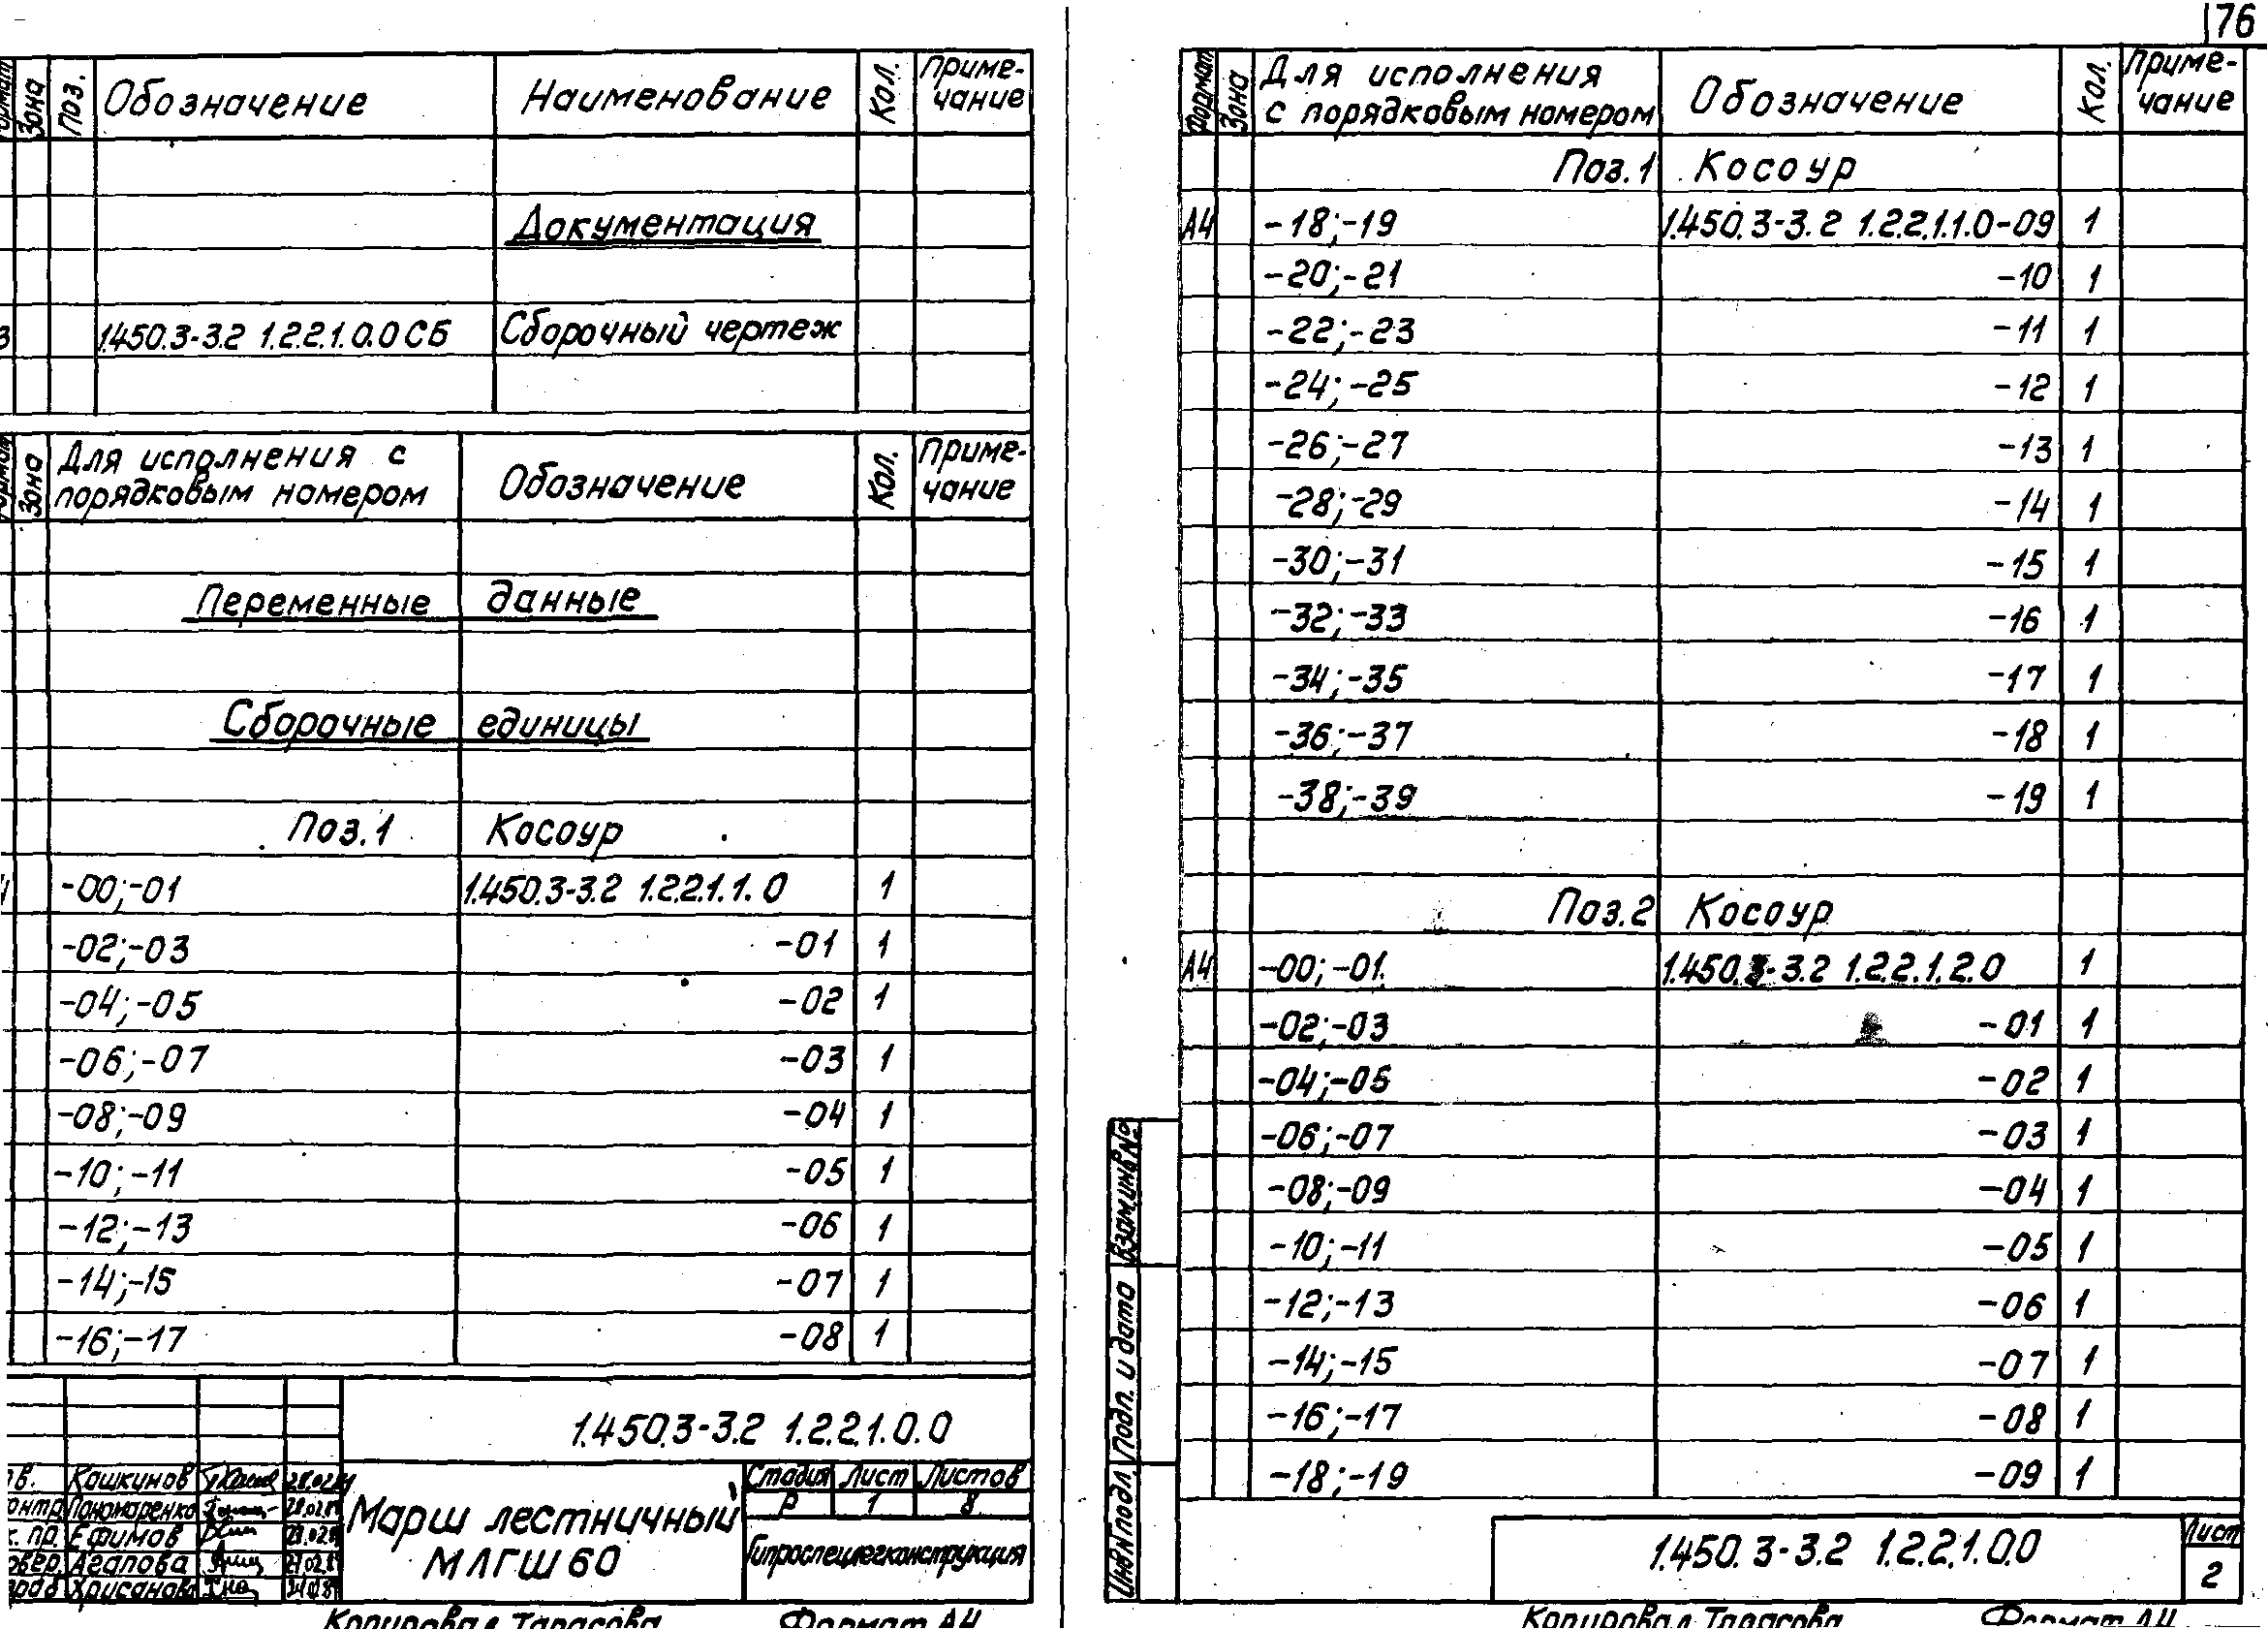 76
Зона Поз. Обозначение Наименование Кол. Приме-
чание
Документация
1.450.3-3.2 1.2.2.1.0.0 СБ Сборочный чертеж
Зона Для исполнения с
порядковым номером Обозначение Кол. Приме-
чание
Переменные данные
Сборочные единицы
Поз.1 Косоур
-00;-01 1.450.3-3.2 1.2.2.1.1.0 1
-02;-03 -01 1
-04;-05 -02 1
-06;-07 -03 1
-08;-09 -04 1
-10;-11 -05 1
-12;-13 -06 1
-14;-15 -07 1
-16;-17 -08 1
1.450.3-3.2 1.2.2.1.0.0
Кашкинов
Пономаренко
Ефимов
Агапова
Хрисанова
Марш лестничный
МЛГШ 60
Стадия Лист Листов
Р 1 8
Гипроспецлегконструкция
Копировал Тарасова Формат А4
Формат Зона Для исполнения
с порядковым номером Обозначение Кол. Приме-
чание
Поз.1 Косоур
А4 -18;-19 1.450.3-3.2 1.2.2.1.1.0-09 1
-20;-21 -10 1
-22;-23 -11 1
-24;-25 -12 1
-26;-27 -13 1
-28;-29 -14 1
-30;-31 -15 1
-32;-33 -16 1
-34;-35 -17 1
-36;-37 -18 1
-38;-39 -19 1
Поз.2 Косоур
А4 -00;-01 1.450.3-3.2 1.2.2.1.2.0 1
-02;-03 -01 1
-04;-05 -02 1
-06;-07 -03 1
-08;-09 -04 1
-10;-11 -05 1
-12;-13 -06 1
-14;-15 -07 1
-16;-17 -08 1
-18;-19 -09 1
Взам.инв№
Подп. и дата
Инв№подл.
1.450.3-3.2 1.2.2.1.0.0
Лист
2
Копировал Тарасова Формат А4